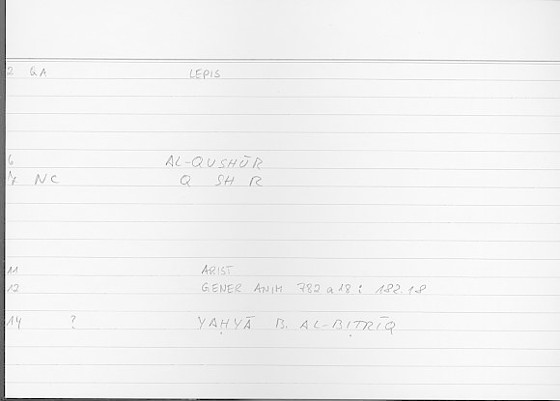 2 GA LEPIS
6 AL-QUSHŪR
7 NC Q SH R
11 ARIST
12 GENER ANIM 782 a 18 : 182.18
14 ? YAḤYĀ B. AL-BIṬRĪQ